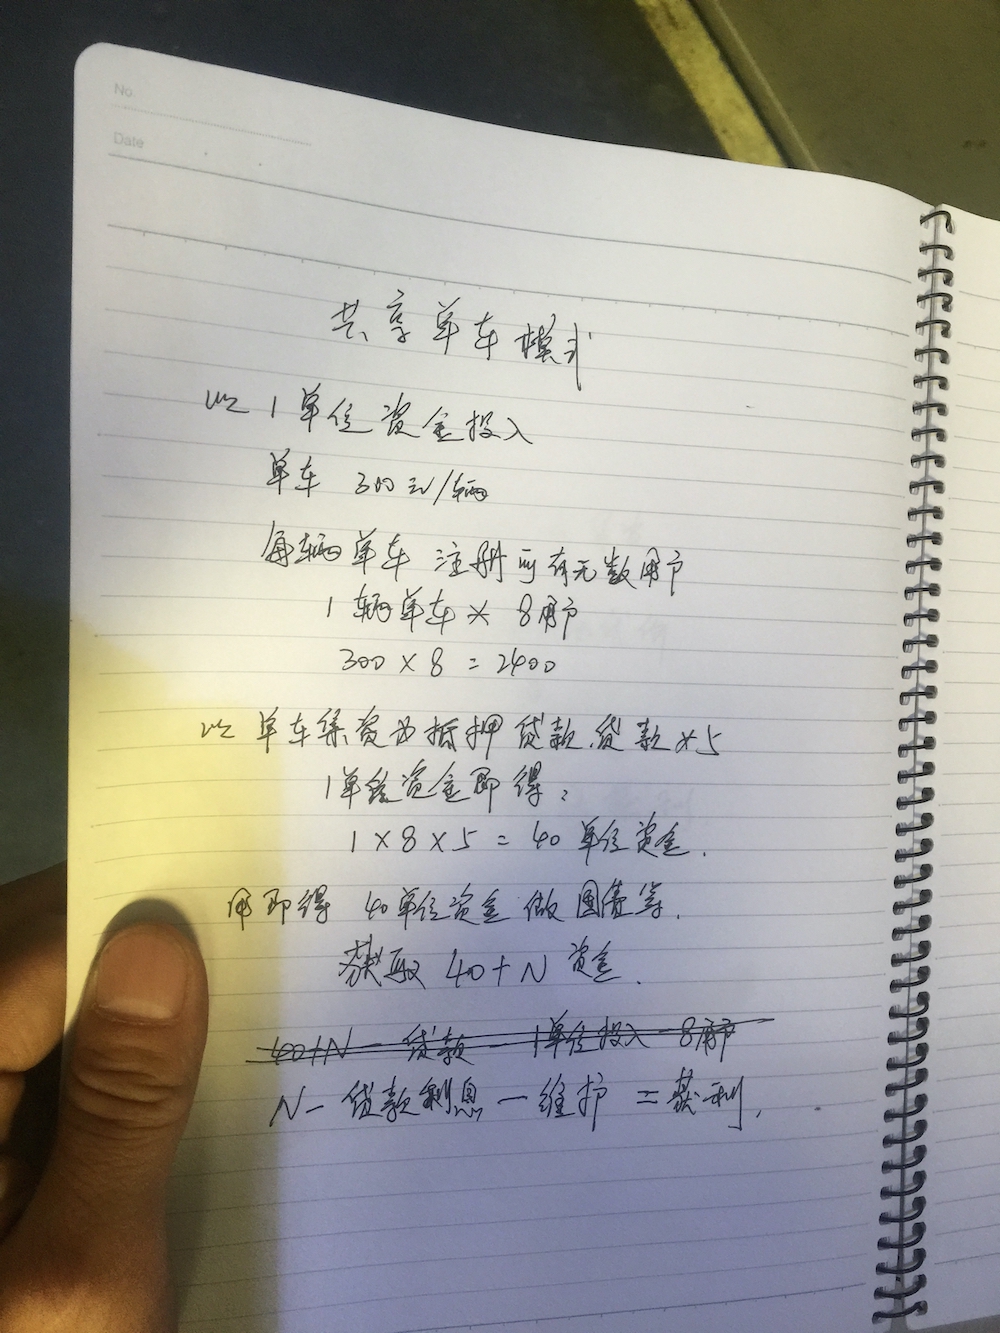 No.
Date
共享单车模式
以1单位资金投入
单车 300元/辆
每辆单车 注册可有无数用户
1辆单车 × 8用户
300 × 8 = 2400
以单车集资为抵押贷款,贷款×5
1单位资金即得:
1 × 8 × 5 = 40 单位资金.
用即得 40单位资金 做国债等.
获取 40+N 资金.
40+N - 贷款 - 1单位投入 - 8用户
N - 贷款利息 - 维护 = 获利.